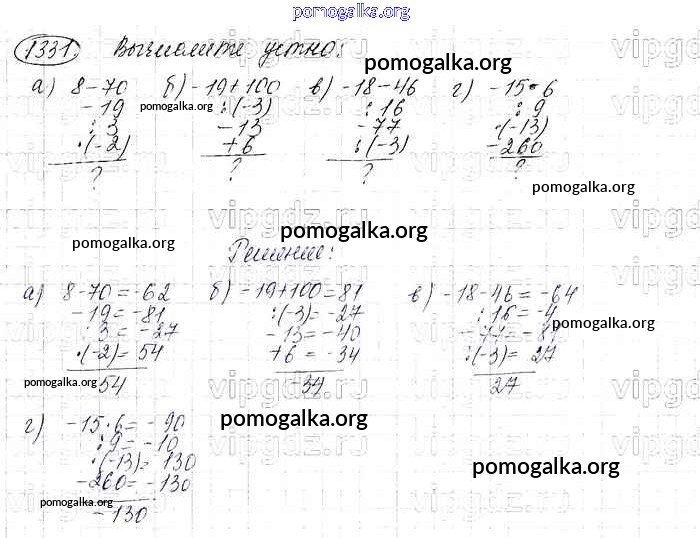 pomogalka.org
1331. Вычислите устно:
а) 8-70 б) -19+100 в) -18-46 г) -15·6
-19 :(-3) :16 :9
:3 -13 -77 ·(-13)
·(-2) +6 :(-3) -260
? ? ? ?
pomogalka.org
pomogalka.org
pomogalka.org
pomogalka.org
pomogalka.org
vipgdz.ru
Решение:
а) 8-70=-62 б) -19+100=81 в) -18-46=-64
-19=-81 :(-3)=-27 :16=-4
:3=-27 -13=-40 -77=-81
·(-2)=54 +6=-34 :(-3)=27
54 -34 27
pomogalka.org
pomogalka.org
г) -15·6=-90
:9=-10
·(-13)=130
-260=-130
-130
pomogalka.org
pomogalka.org
pomogalka.org